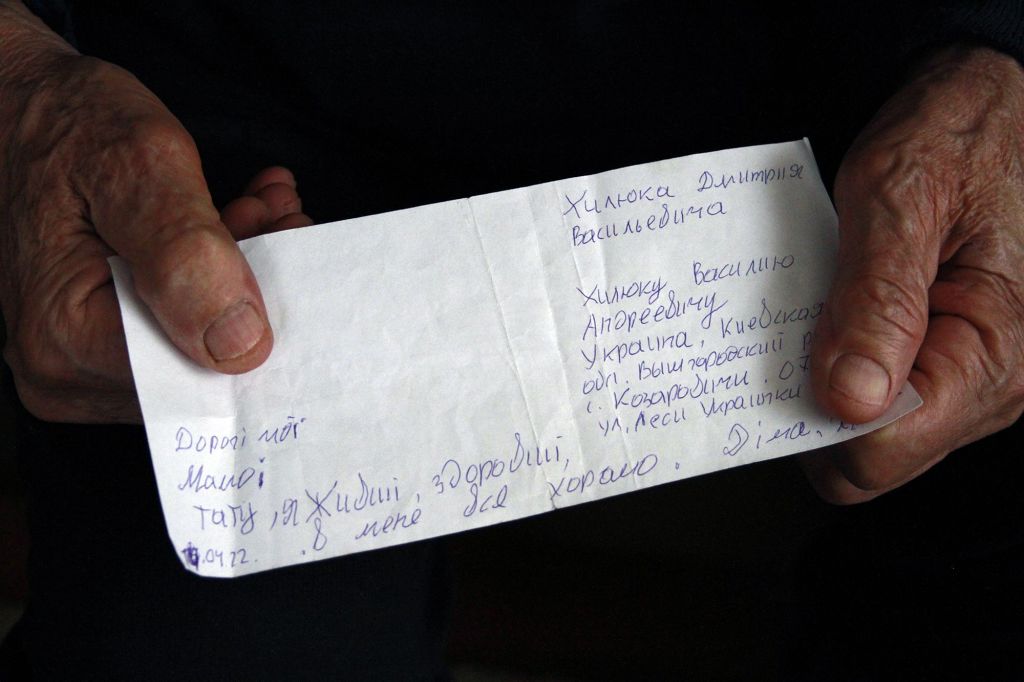 Хилюка Дмитрия
Васильевича
Хилюку Василию
Андреевичу
Украина, Киевская
обл. Вышгородский р
с. Козаровичи. 07
ул. Леси Украинки
Дорогі мої
Мамо і
тату, я живий, здоровий,
в мене все хорошо. Діма,
.04.22.